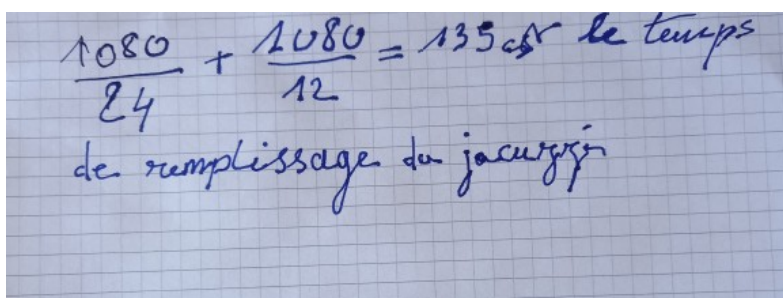 1080/24 + 1080/12 = 135 est le temps
de remplissage du jacuzzi